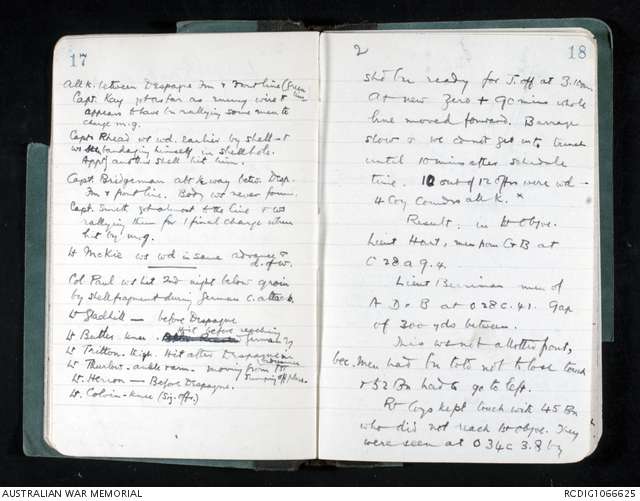 17
All k. between Despagne Fm & front line (Green line
Capt. Kay got as far as enemy wire &
appears to have bn rallying some men to
charge m.g.
Capt Rhead ws wd. earlier by shell &
ws bandaging himself in shellhole.
Appy another shell hit him.
Capt. Bridgeman alt k way betw. Desp.
Fm & front line. Body ws never found.
Capt. Smith got almost to the line & ws
rallying them for 1 final charge when
hit by m.g.
Lt McKie ws wd in same advance &
d. of w.
Col Paul ws hit 2nd night below groin
by shell fragment during German c. attack.
Lt Gladhill - before Despagne
Lt Butler. knee. Hit before reaching
Lt Tritton. thigh. Hit after Despagne
Lt Thurlow. ankle moving from
jumping off place.
Lt. Heron - Before Despagne.
Lt. Colvin - knee (Sig. offr.)
2
18
shd bn ready for J. off at 3.10am
At new Zero + 90 mins whole
line moved forward. Barrage
slow & we cd not get into trench
until 10 mins after schedule
time. 10 out of 12 offrs were wd -
4 Coy Comdrs all k. x
Result: in 1st objve.
Lieut Hart, men from C & B at
C 28 a 9.4.
Lieut Berriman men of
A D & B at O 28 C. 41. Gap
of 300 yds between.
This was not all attn front,
bec. men had bn told not to lose touch
& 52 Bn had to go to left.
Rt Coys kept touch with 45 Bn
who did not reach 1st objve. They
were seen at O 34c 3.8 by
AUSTRALIAN WAR MEMORIAL
RCDIG1066625